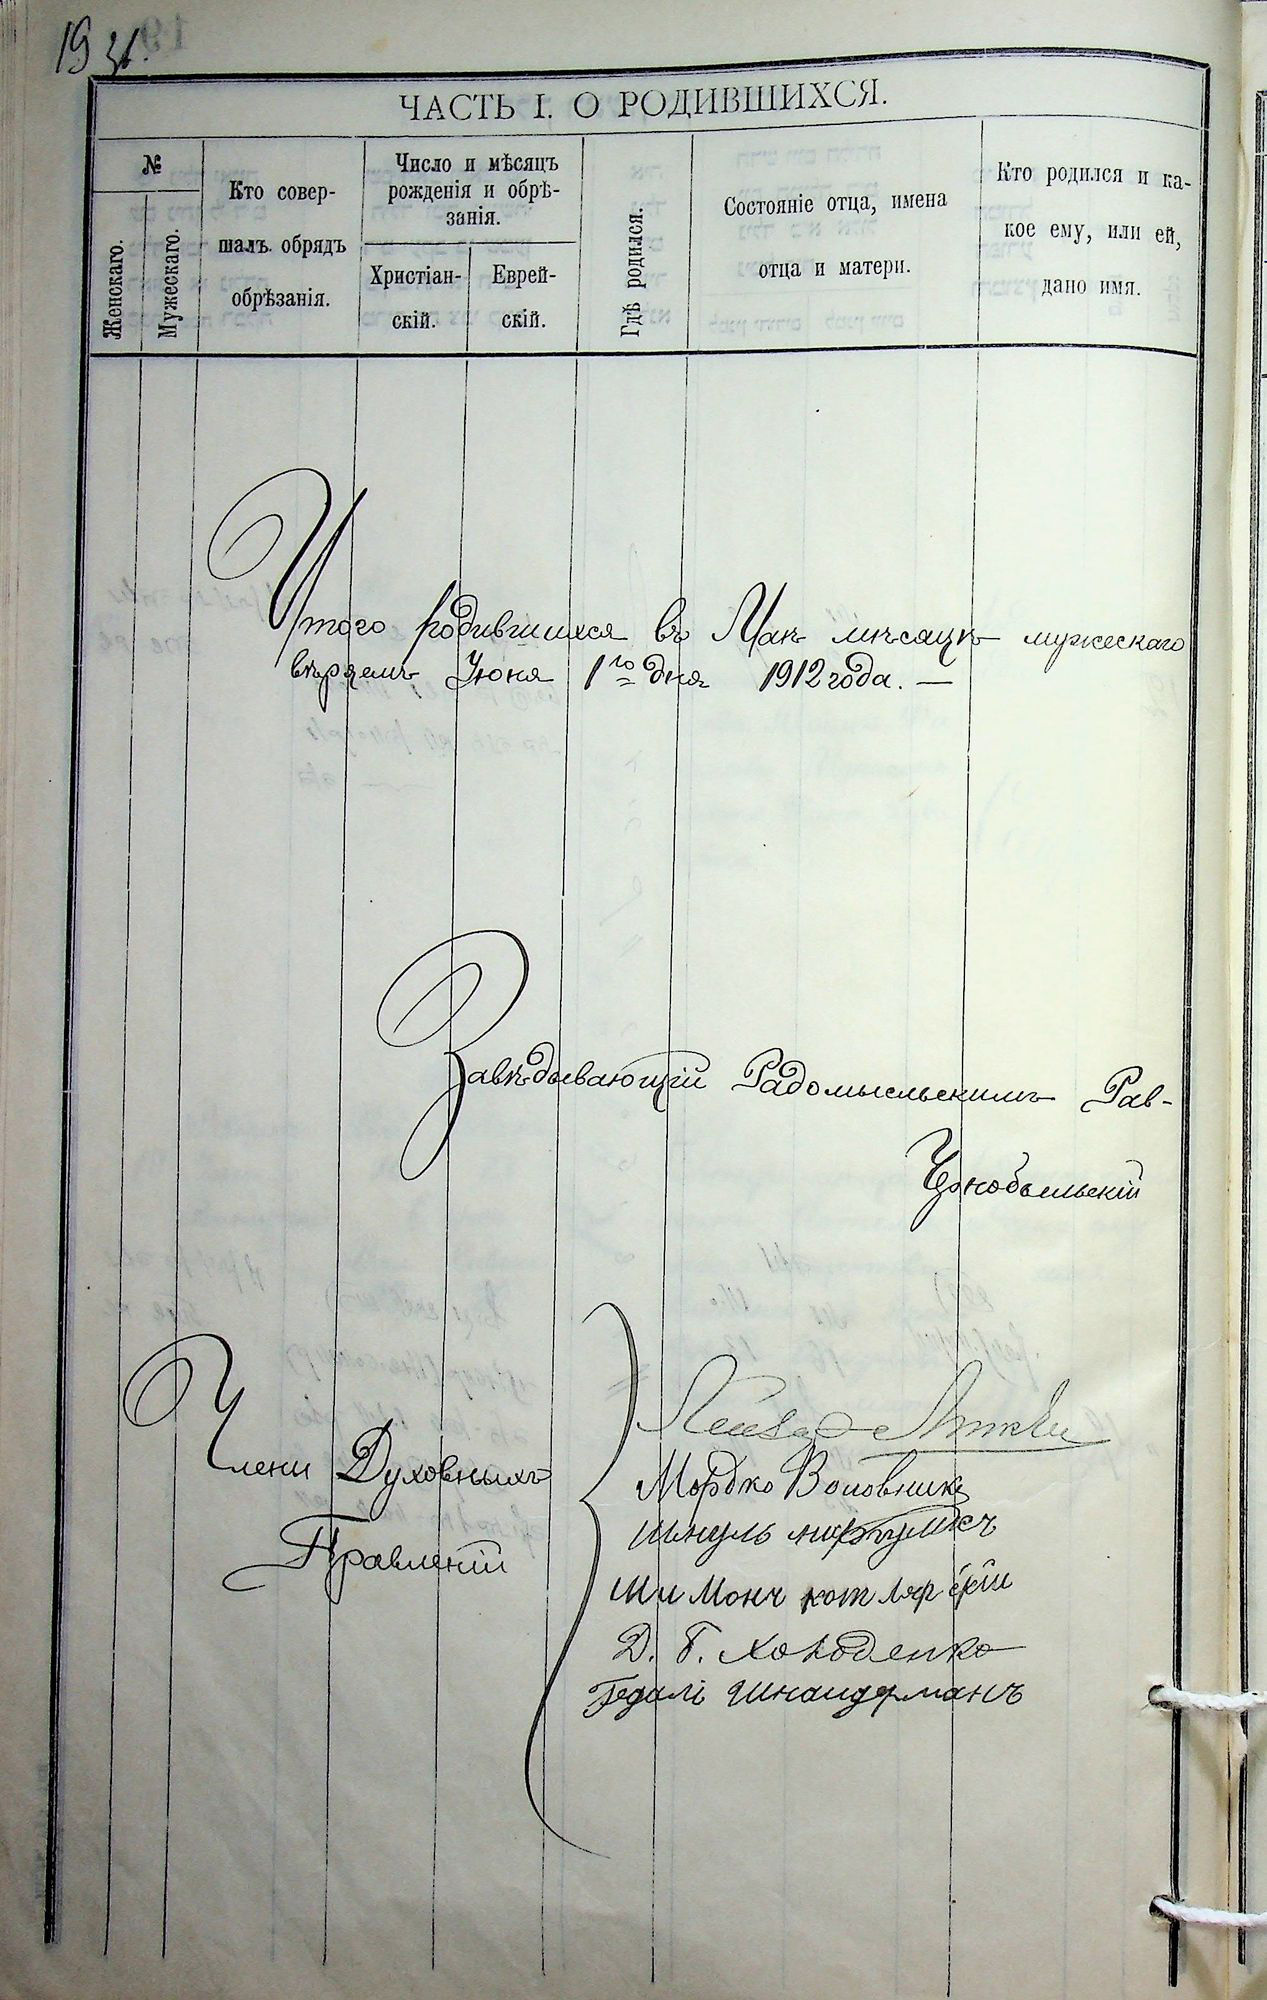 19 зв.
ЧАСТЬ I. О РОДИВШИХСЯ.
№
Женскаго.
Мужескаго.
Кто совер-
шалъ обрядъ
обрѣзанія.
Число и мѣсяцъ
рожденія и обрѣ-
занія.
Христіан-
скій.
Еврей-
скій.
Гдѣ родился.
Состояніе отца, имена
отца и матери.
Кто родился и ка-
кое ему, или ей,
дано имя.
Итого родившихся въ Маѣ мѣсяцѣ мужескаго
вѣряемъ Іюня 1го дня 1912 года. —
Завѣдывающій Радомысльскимъ Рав-
Чернобыльскій
Члени Духовныхъ
Правленій
Мордко Воловникъ
Шмуль
Шимонъ Котлярскій
Д. Г. Холоденко
Гедалі Шнайдерманъ